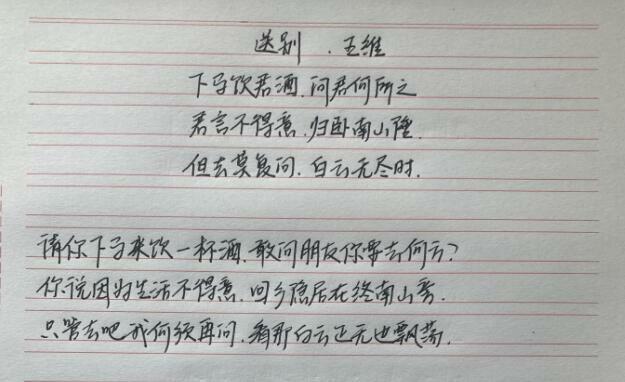 送别 . 王維
下马饮君酒.问君何所之
君言不得意.归卧南山陲.
但去莫复问.白云无尽时.
请你下马来饮一杯酒.敢问朋友你要去何方?
你说因为生活不得意.回乡隐居在终南山旁.
只管去吧我何须再问.看那白云正无边飘荡.